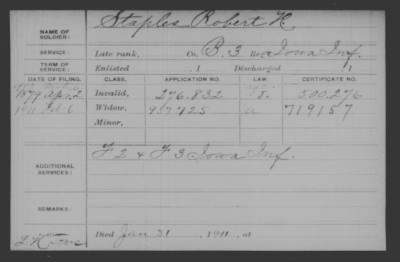 NAME OF SOLDIER: Staples Robert H.
SERVICE: Late rank, Co. B. 3 Reg. Iowa Inf.
TERM OF SERVICE: Enlisted 1 Discharged 1
DATE OF FILING. CLASS. APPLICATION NO. LAW. CERTIFICATE NO.
1879 Apr. 2 Invalid, 276.832 500276
1911 Feb 6 Widow, 957725 719157
Minor,
ADDITIONAL SERVICES: F 2 & F 3 Iowa Inf.
REMARKS:
Died Jan 31, 1911, at